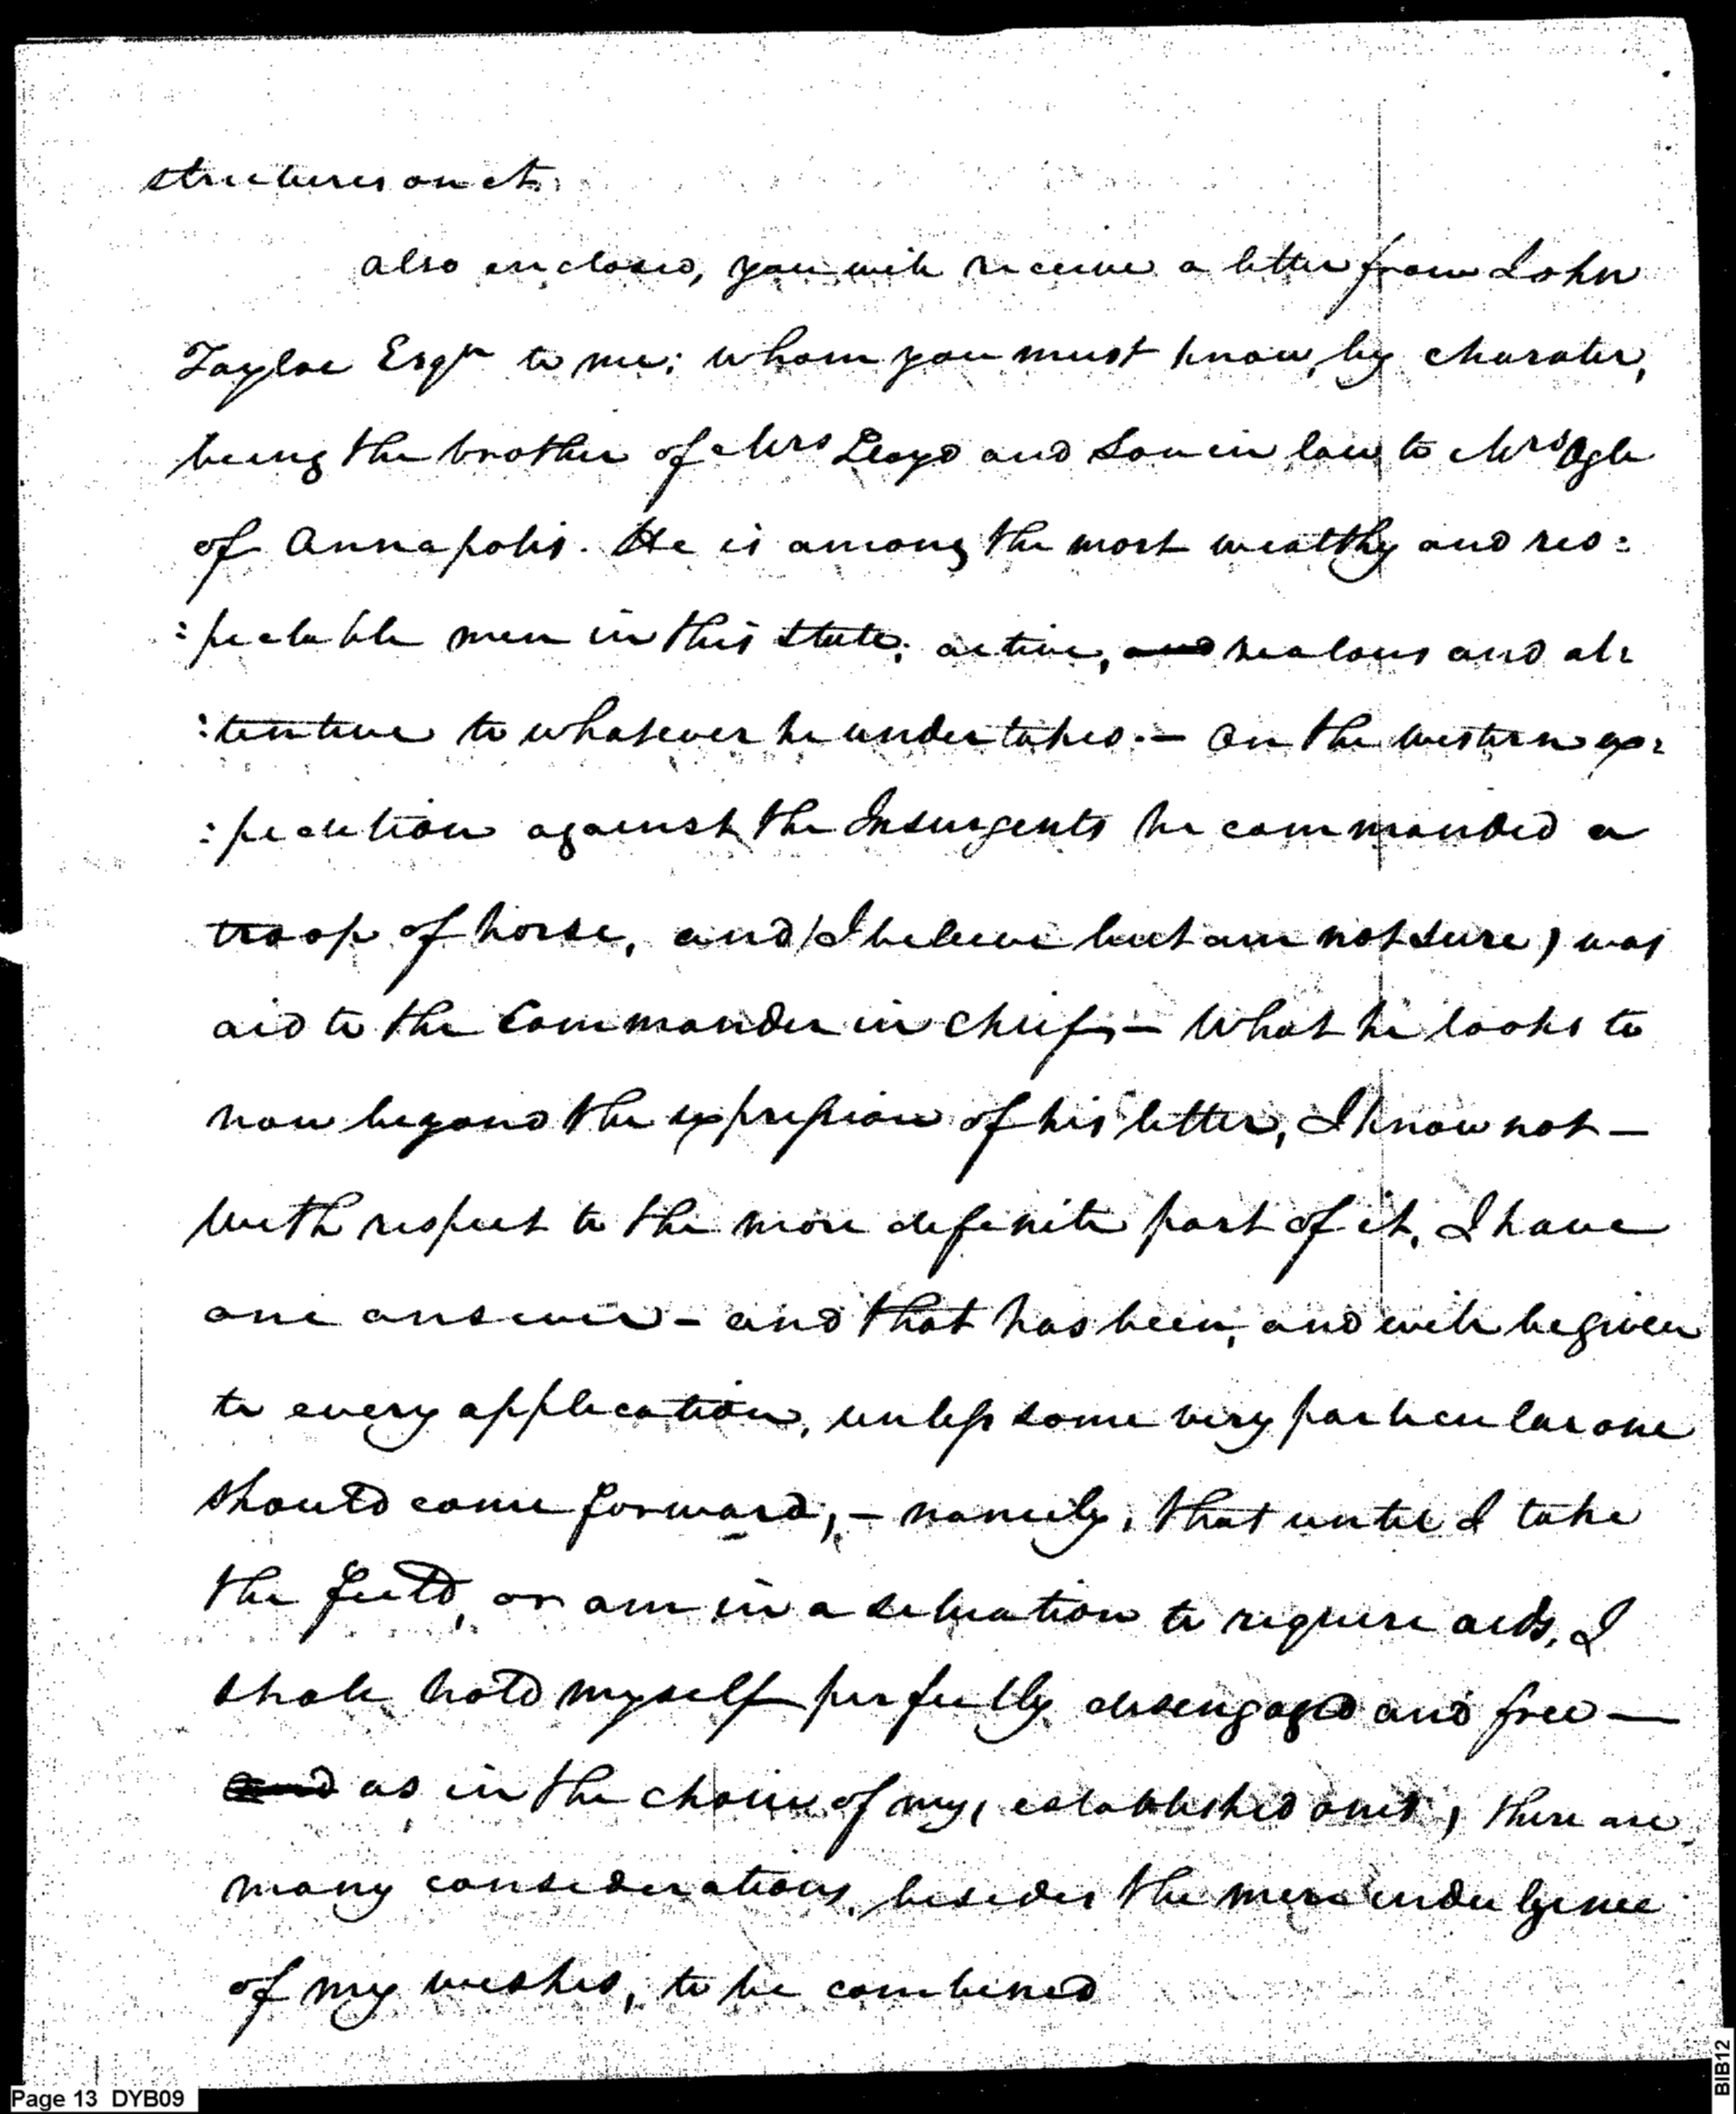 strictures on it.
Also enclosed, you will receive a letter from John
Tayloe Esqr to me; whom you must know, by charater,
being the brother of Mrs Lloyd and Son in law to Mrs Ogle
of Annapolis. He is among the most wealthy and res:
:pectable men in this State; active, and zealous and at:
:tentive to whatever he undertakes.— On the western ex:
:pedition against the Insurgents he commanded a
troop of horse, and (I believe but am not sure) was
aid to the Commander in chief,— What he looks to
now beyond the expression of his letter, I know not—
With respect to the more definite part of it, I have
one answer— and that has been, and will be given
to every application, unless some very particular one
should come forward;— namely, that until I take
the field, or am in a situation to require aids, I
shall hold myself perfectly disengaged and free—
and as in the choice of my (established ones) there are
many considerations, besides the mere indulgence
of my wishes, to be combined
Page 13 DYB09
BIB12